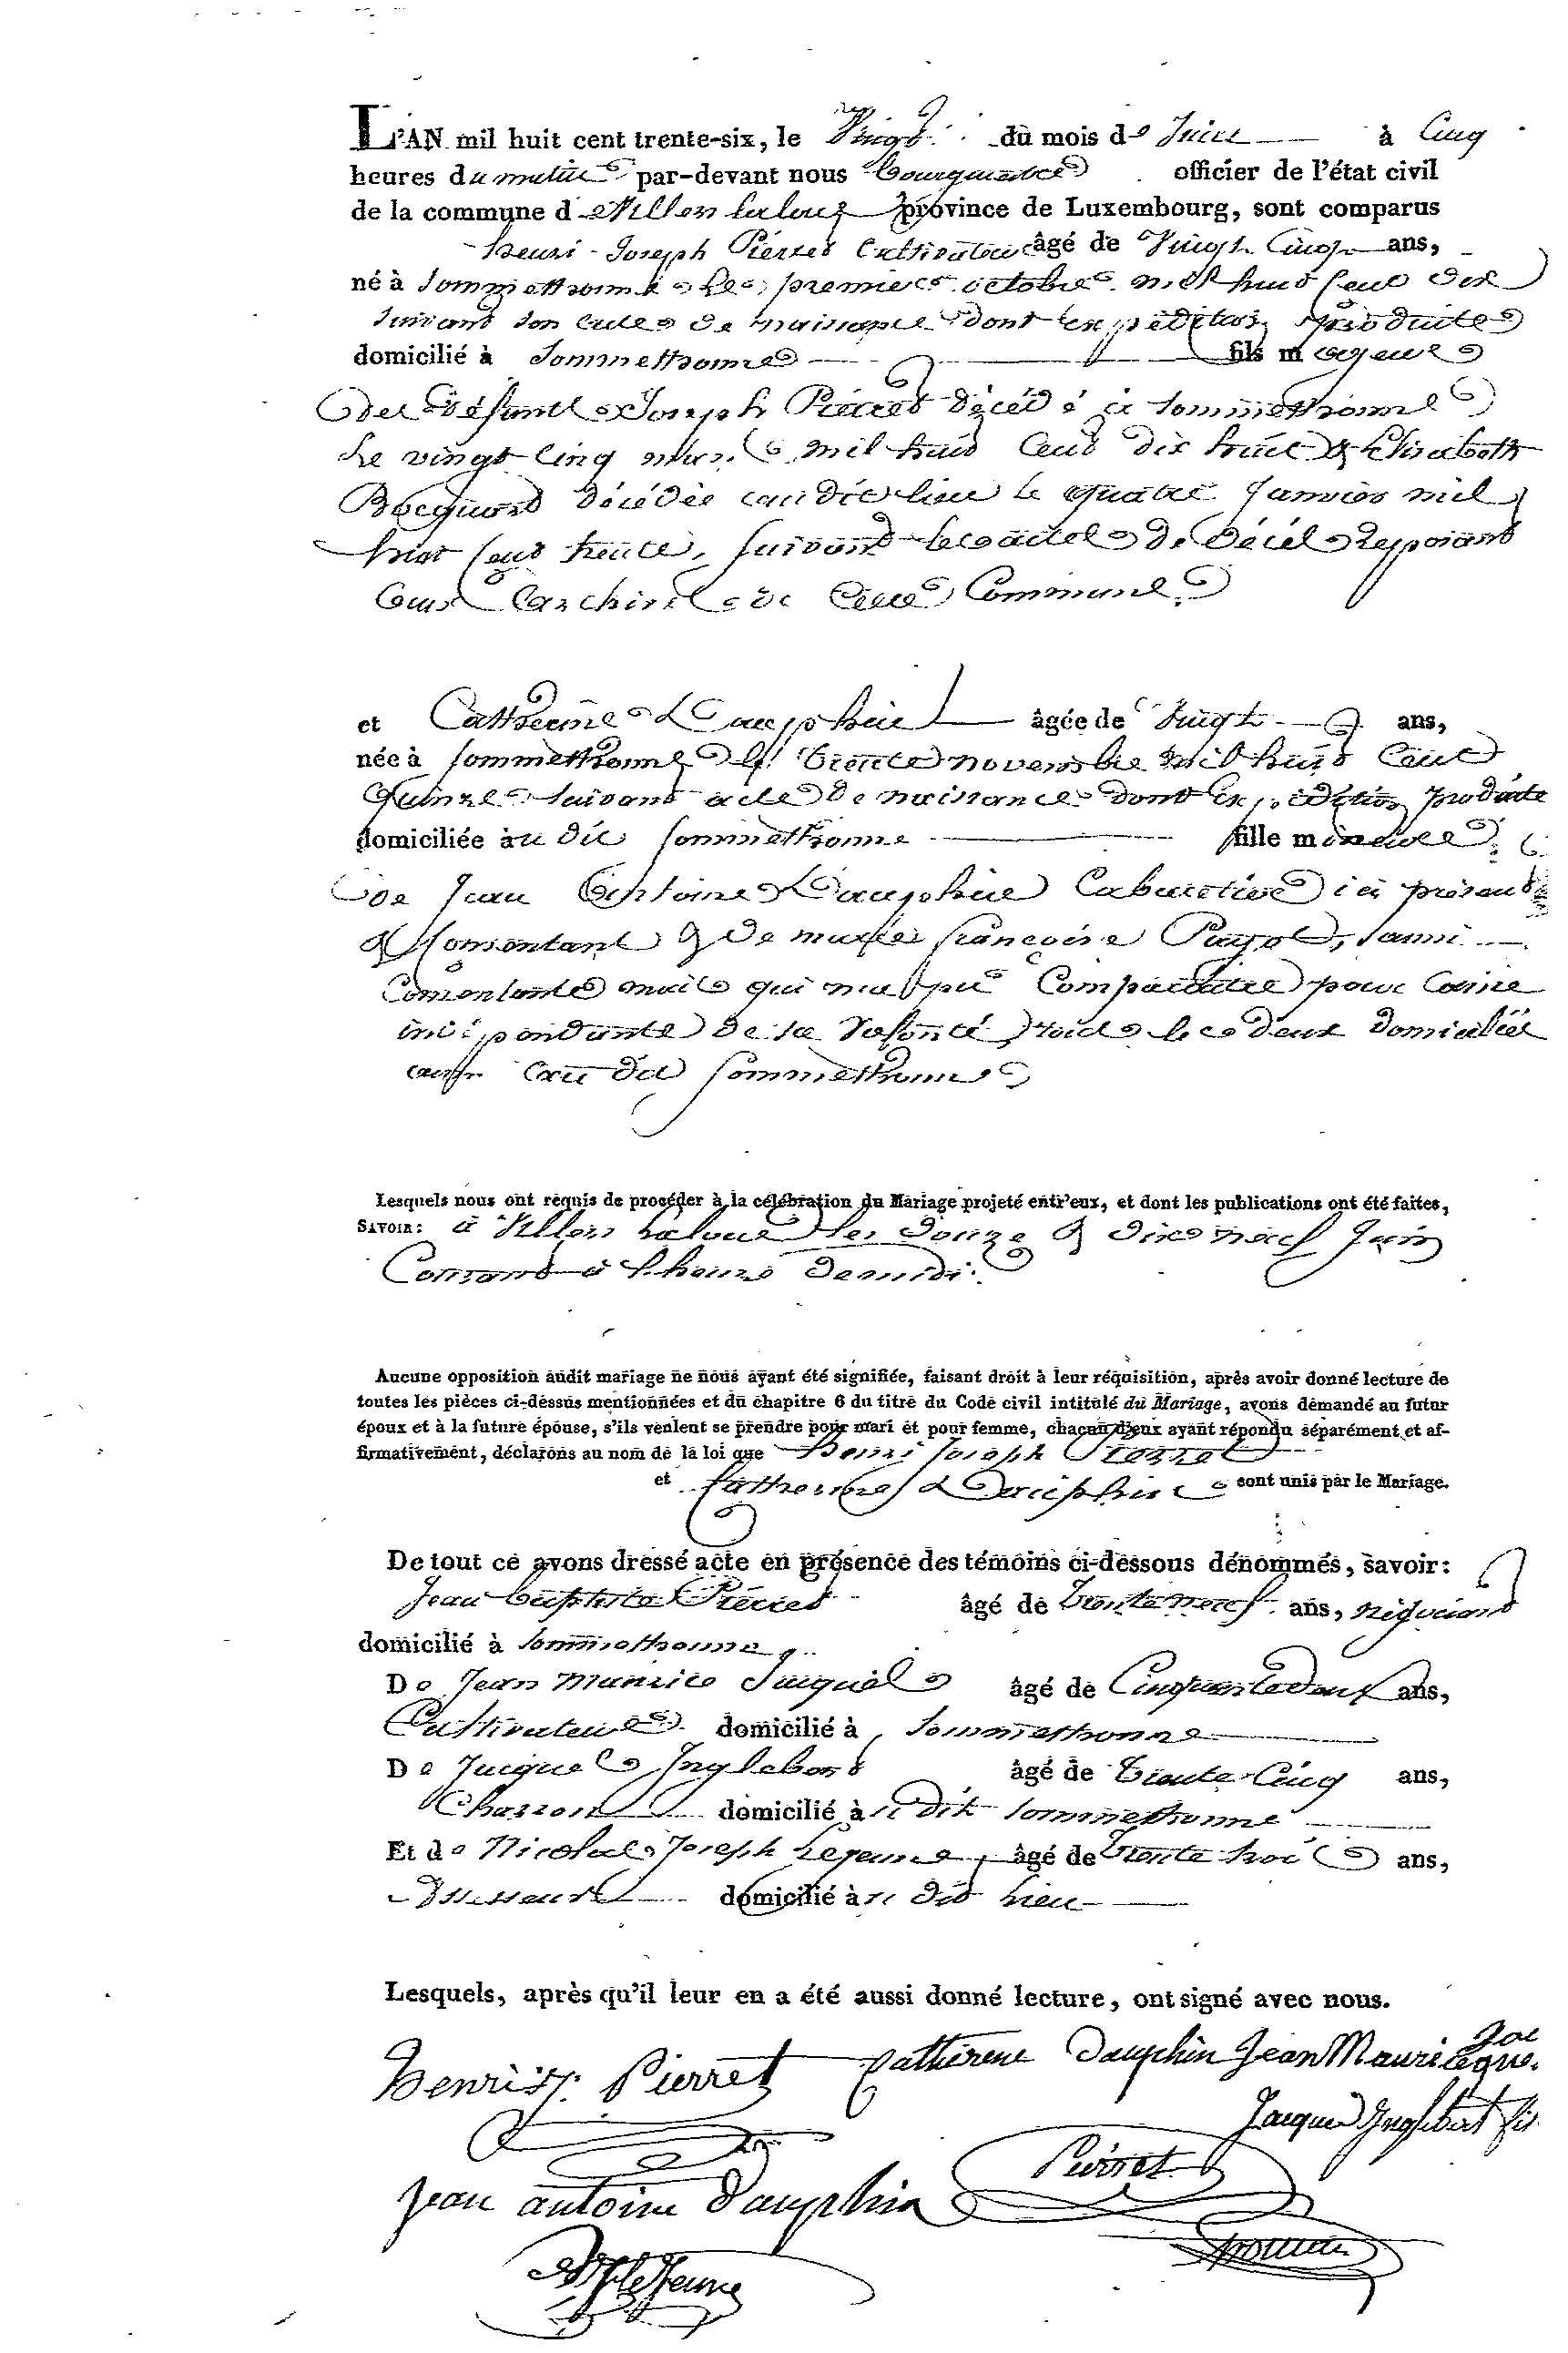 L'AN mil huit cent trente-six, le Vingt du mois de Juin à Cinq
heures du matin par-devant nous Bourguemestre officier de l'état civil
de la commune de Villers laloue province de Luxembourg, sont comparus
henri-Joseph Pierret Cultivateur âgé de Vingt Cinq ans,
né à Sommethonne le premier octobre mil huit Cent dix
suivant son acte de naissance dont expédition produite
domicilié à Sommethonne fils majeur
de défunt Joseph Pierret décédé à Sommethonne
le vingt Cinq mars mil huit Cent dix huit & Elisabeth
décédée au dit lieu le quatre Janvier mil
huit Cent trente, suivant les actes de décès reposant
aux archives de Cette Commune
et Catherine Dauphin âgée de Vingt ans,
née à Sommethonne le trente novembre mil huit Cent
Quinze suivant acte de naissance dont expédition produite
domiciliée au dit Sommethonne fille mineure
de Jean Antoine Dauphin Cabaretier ici présent
& Consentant & de marie françoise Payot, aussi
Consentante mais qui n'a pu Comparaitre pour Cause
indépendante de sa Volonté, tous les deux domiciliés
au dit Sommethonne
Lesquels nous ont requis de procéder à la célébration du Mariage projeté entr'eux, et dont les publications ont été faites,
SAVOIR: à Villers laloue les Douze & dix neuf Juin
Courant à l'heure de midi.
Aucune opposition audit mariage ne nous ayant été signifiée, faisant droit à leur réquisition, après avoir donné lecture de
toutes les pièces ci-dessus mentionnées et du chapitre 6 du titre du Code civil intitulé du Mariage, avons demandé au futur
époux et à la future épouse, s'ils veulent se prendre pour mari et pour femme, chacun d'eux ayant répondu séparément et af-
firmativement, déclarons au nom de la loi que henri Joseph Pierret
et Catherine Dauphin sont unis par le Mariage.
De tout ce avons dressé acte en présence des témoins ci-dessous dénommés, savoir:
Jean baptiste Pierret âgé de Trente neuf ans, négociant
domicilié à Sommethonne
De Jean Maurice Jacques âgé de Cinquante Deux ans,
Cultivateur domicilié à Sommethonne
De Jacques Inglebert âgé de Trente Cinq ans,
Charron domicilié à Sommethonne
Et de Nicolas Joseph Lejeune âgé de Trente trois ans,
Assesseur domicilié dit lieu
Lesquels, après qu'il leur en a été aussi donné lecture, ont signé avec nous.
henri j. Pierret Catherine Dauphin Jean Maurice Jacque.
Jacques Inglebert fils
Pierret
Jean antoine Dauphin
le Jeune